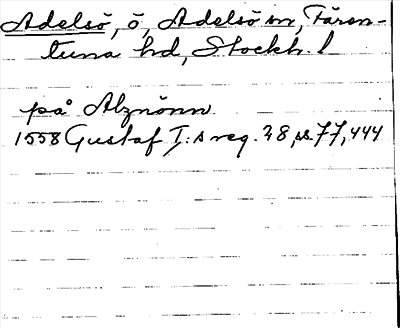 Adelsö, ö, Adelsö sn, Fären-
tuna hd, Stockh. l
på Alznönn
1558 Gustaf I:s reg. 28, s. 77, 444